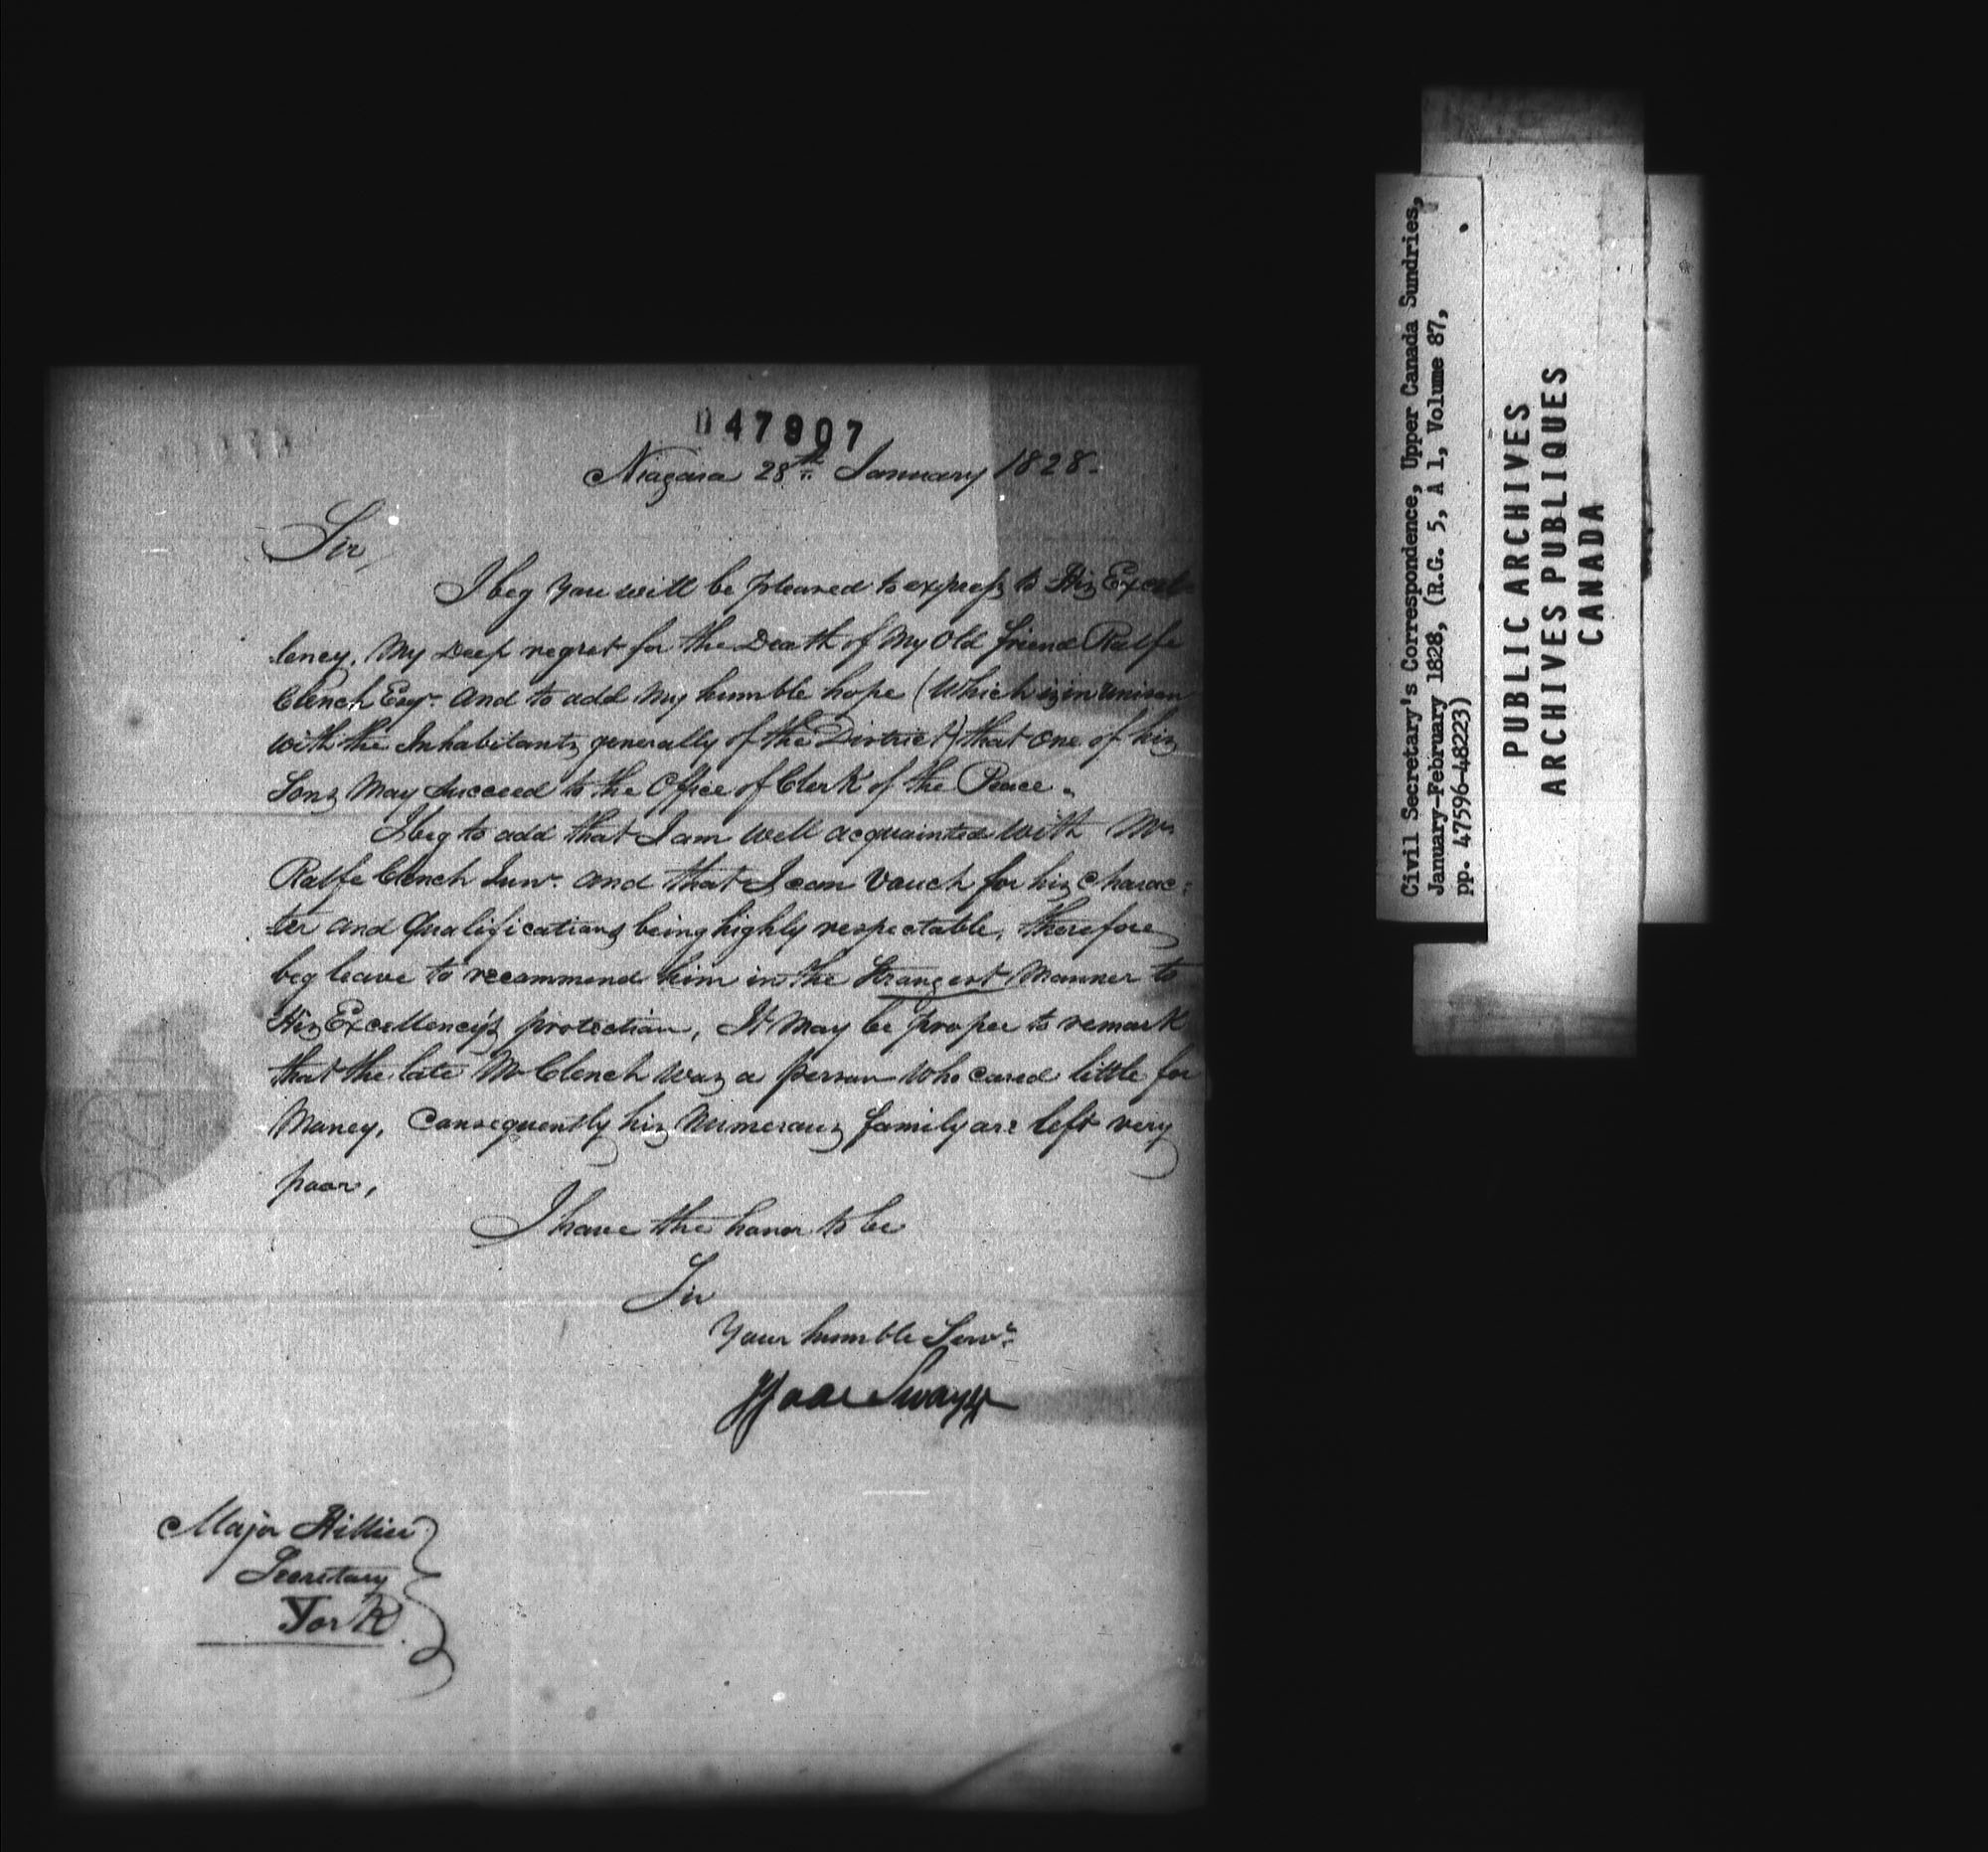 047907
Niagara 28th January 1828.
Sir,
I beg you will be pleased to express to His Excel-
lency, My Deep regret for the Death of My Old friend Ralfe
Clench Esqr. And to add My humble hope (Which is in unison
with the Inhabitants generally of the District) that one of his
Sons May Succeed to the Office of Clerk of the Peace.
I beg to add that I am Well acquainted With Mr
Ralfe Clench Junr. And that I can Vouch for his Charac=
ter and Qualifications being highly respectable, therefore
beg leave to recommend him in the Strongest Manner to
His Excellency's protection, It May be proper to remark
that the late Mr Clench Was a person Who cared little for
Money, Consequently his Numerous family are left very
poor,
I have the honor to be
Sir
Your humble Servt.
Isaac Swayze
Major Hillier
Secretary
York.
Civil Secretary's Correspondence, Upper Canada Sundries,
January-February 1828, (R.G. 5, A 1, Volume 87,
pp. 47596-48223)
PUBLIC ARCHIVES
ARCHIVES PUBLIQUES
CANADA